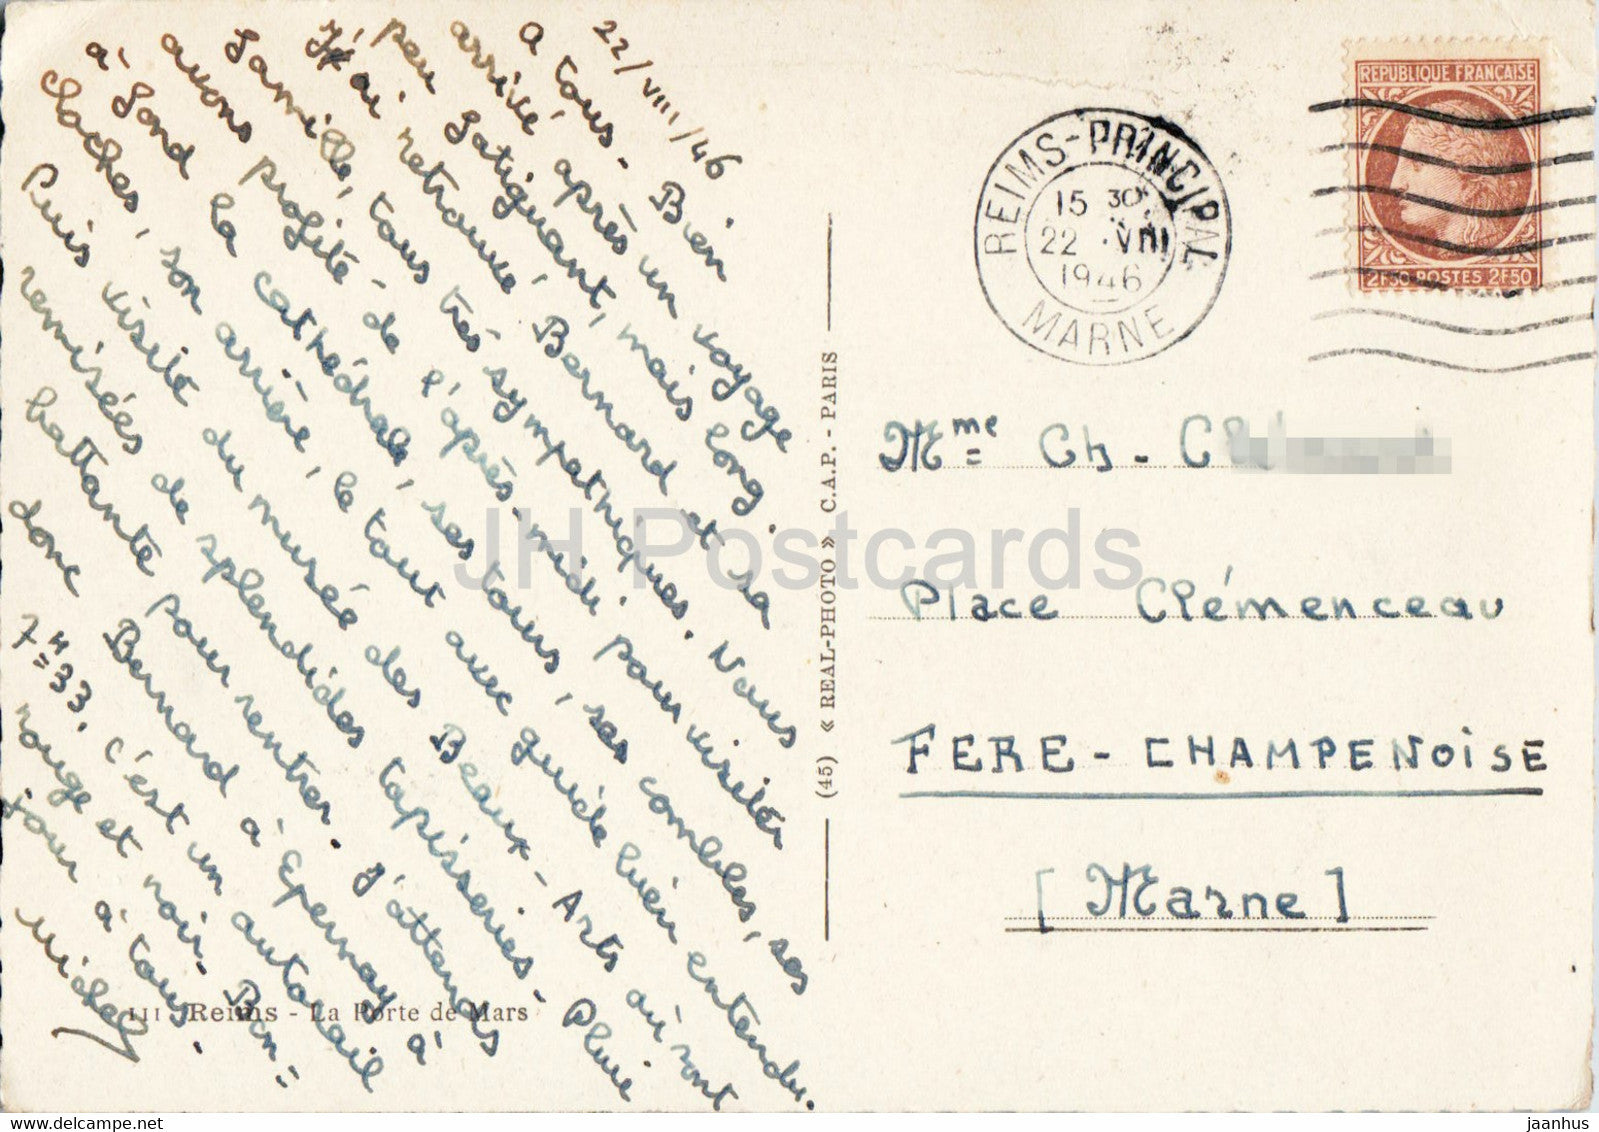 22/VIII/46
A tous - Bien
arrivé après un voyage
peu fatiguant, mais long.
J'ai retrouvé Bernard et sa
famille, tous très sympathiques. Nous
avons profité de l'après-midi pour visiter
à fond la cathédrale, ses tours, ses combles, ses
cloches, son arrière, le tout avec guide bien entendu.
Puis visité du musée des Beaux-Arts où sont
remisées de splendides tapisseries - Pluie
battante pour rentrer - J'attends
donc Bernard à Epernay à
7H33, c'est un autorail
rouge et noir - Bon=
jour à tous -
Michel
111 Reims - La Porte de Mars
(45) « REAL-PHOTO » C.A.P. - PARIS
REIMS-PRINCIPAL
15 30
22 VIII
1946
MARNE
REPUBLIQUE FRANÇAISE
2F50 POSTES 2F50
Mme Ch - Cl
Place Clémenceau
FERE-CHAMPENOISE
[Marne]
JH Postcards
jaanhus